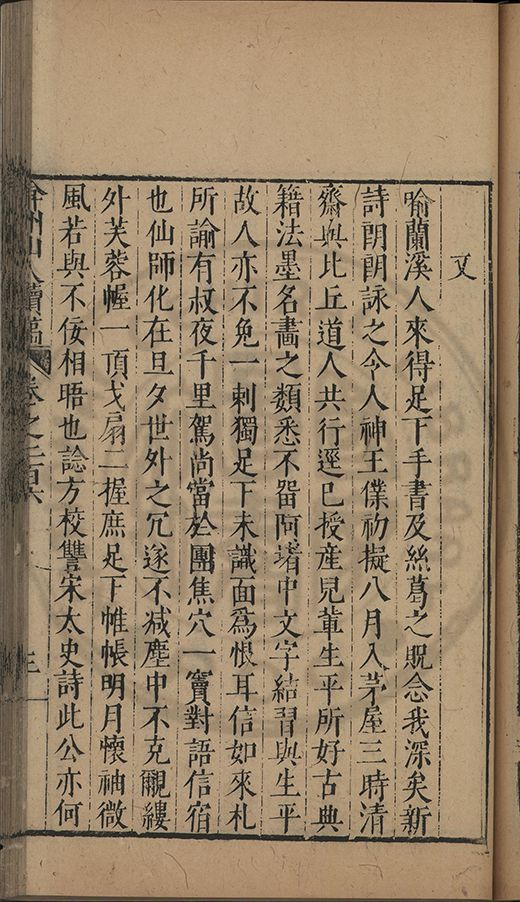 又
喻蘭溪人來得足下手書及絲葛之貺念我深矣新
詩朗朗詠之令人神王僕初擬八月入茅屋三時清
齋與比丘道人共行逕已授産兒軰生平所好古典
籍法墨名畵之類悉不畱阿堵中文字結習與生平
故人亦不免一刺獨足下未識面爲恨耳信如來札
所諭有叔夜千里駕尚當於團焦穴一竇對語信宿
也仙師化在旦夕世外之冗遂不减塵中不克覼縷
外芙蓉幄一頂戈扇二握庶足下帷帳明月懷袖微
風若與不佞相晤也諗方校讐宋太史詩此公亦何
弇州山人續稿 卷之二百六 三